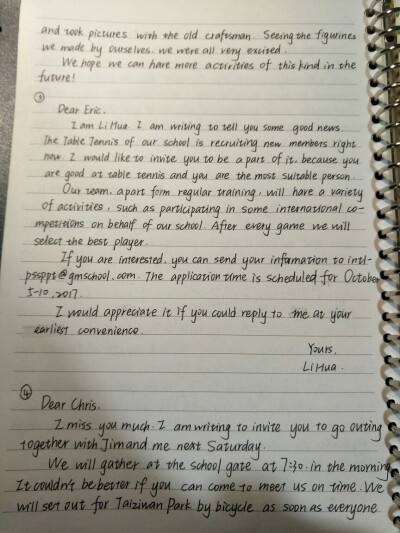 and took pictures with the old craftsman. Seeing the figurines
we made by ourselves, we were all very excited.
We hope we can have more activities of this kind in the
future!
③
Dear Eric,
I am Li Hua. I am writing to tell you some good news.
The Table Tennis of our school is recruiting new members right
now. I would like to invite you to be a part of it, because you
are good at table tennis and you are the most suitable person.
Our team, apart form regular training, will have a variety
of activities, such as participating in some international co-
mpetitions on behalf of our school. After every game we will
select the best player.
If you are interested, you can send your information to intl-
psppt@gmschool.com. The application time is scheduled for October
5-10, 2017.
I would appreciate it if you could reply to me at your
earliest convenience.
Yours,
Li Hua.
④
Dear Chris.
I miss you much. I am writing to invite you to go outing
together with Jim and me next Saturday.
We will gather at the school gate at 7:30 in the morning
It couldn't be better if you can come to meet us on time. We
will set out for Taiziwan Park by bicycle as soon as everyone